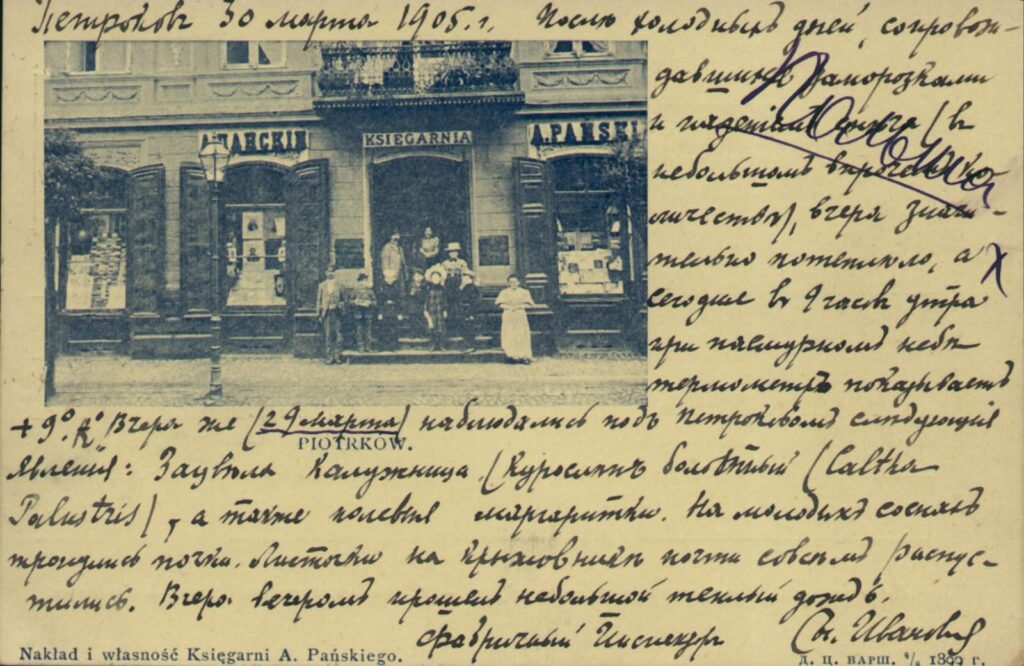 Петроковъ 30 марта 1905. г. Послѣ холодныхъ дней, сопровож-
давшихся заморозками
и паденіемъ снѣга (въ
небольшомъ впрочемъ ко-
личествѣ), вчера значи-
тельно потеплѣло, а
сегодня въ 9 часовъ утра
при пасмурномъ небѣ
термометръ показываетъ
А. ПАНСКІЙ
KSIĘGARNIA
A. PAŃSKI
+ 9°. R° Вчера же (29 марта) наблюдались подъ Петроковомъ слѣдующія
PIOTRKÓW.
явленія: Зацвѣла Калужница (Курослѣпъ болотный (Caltha
Palustris), а также полевыя маргаритки. На молодыхъ соснахъ
тронулись почки. Листочки на крыжовникѣ почти совсѣмъ распус-
тились. Вчера вечеромъ прошелъ небольшой теплый дождь.
Фабричный Инспекторъ Ивановъ
Nakład i własność Księgarni A. Pańskiego.
Д. Ц. ВАРШ. 1899 г.